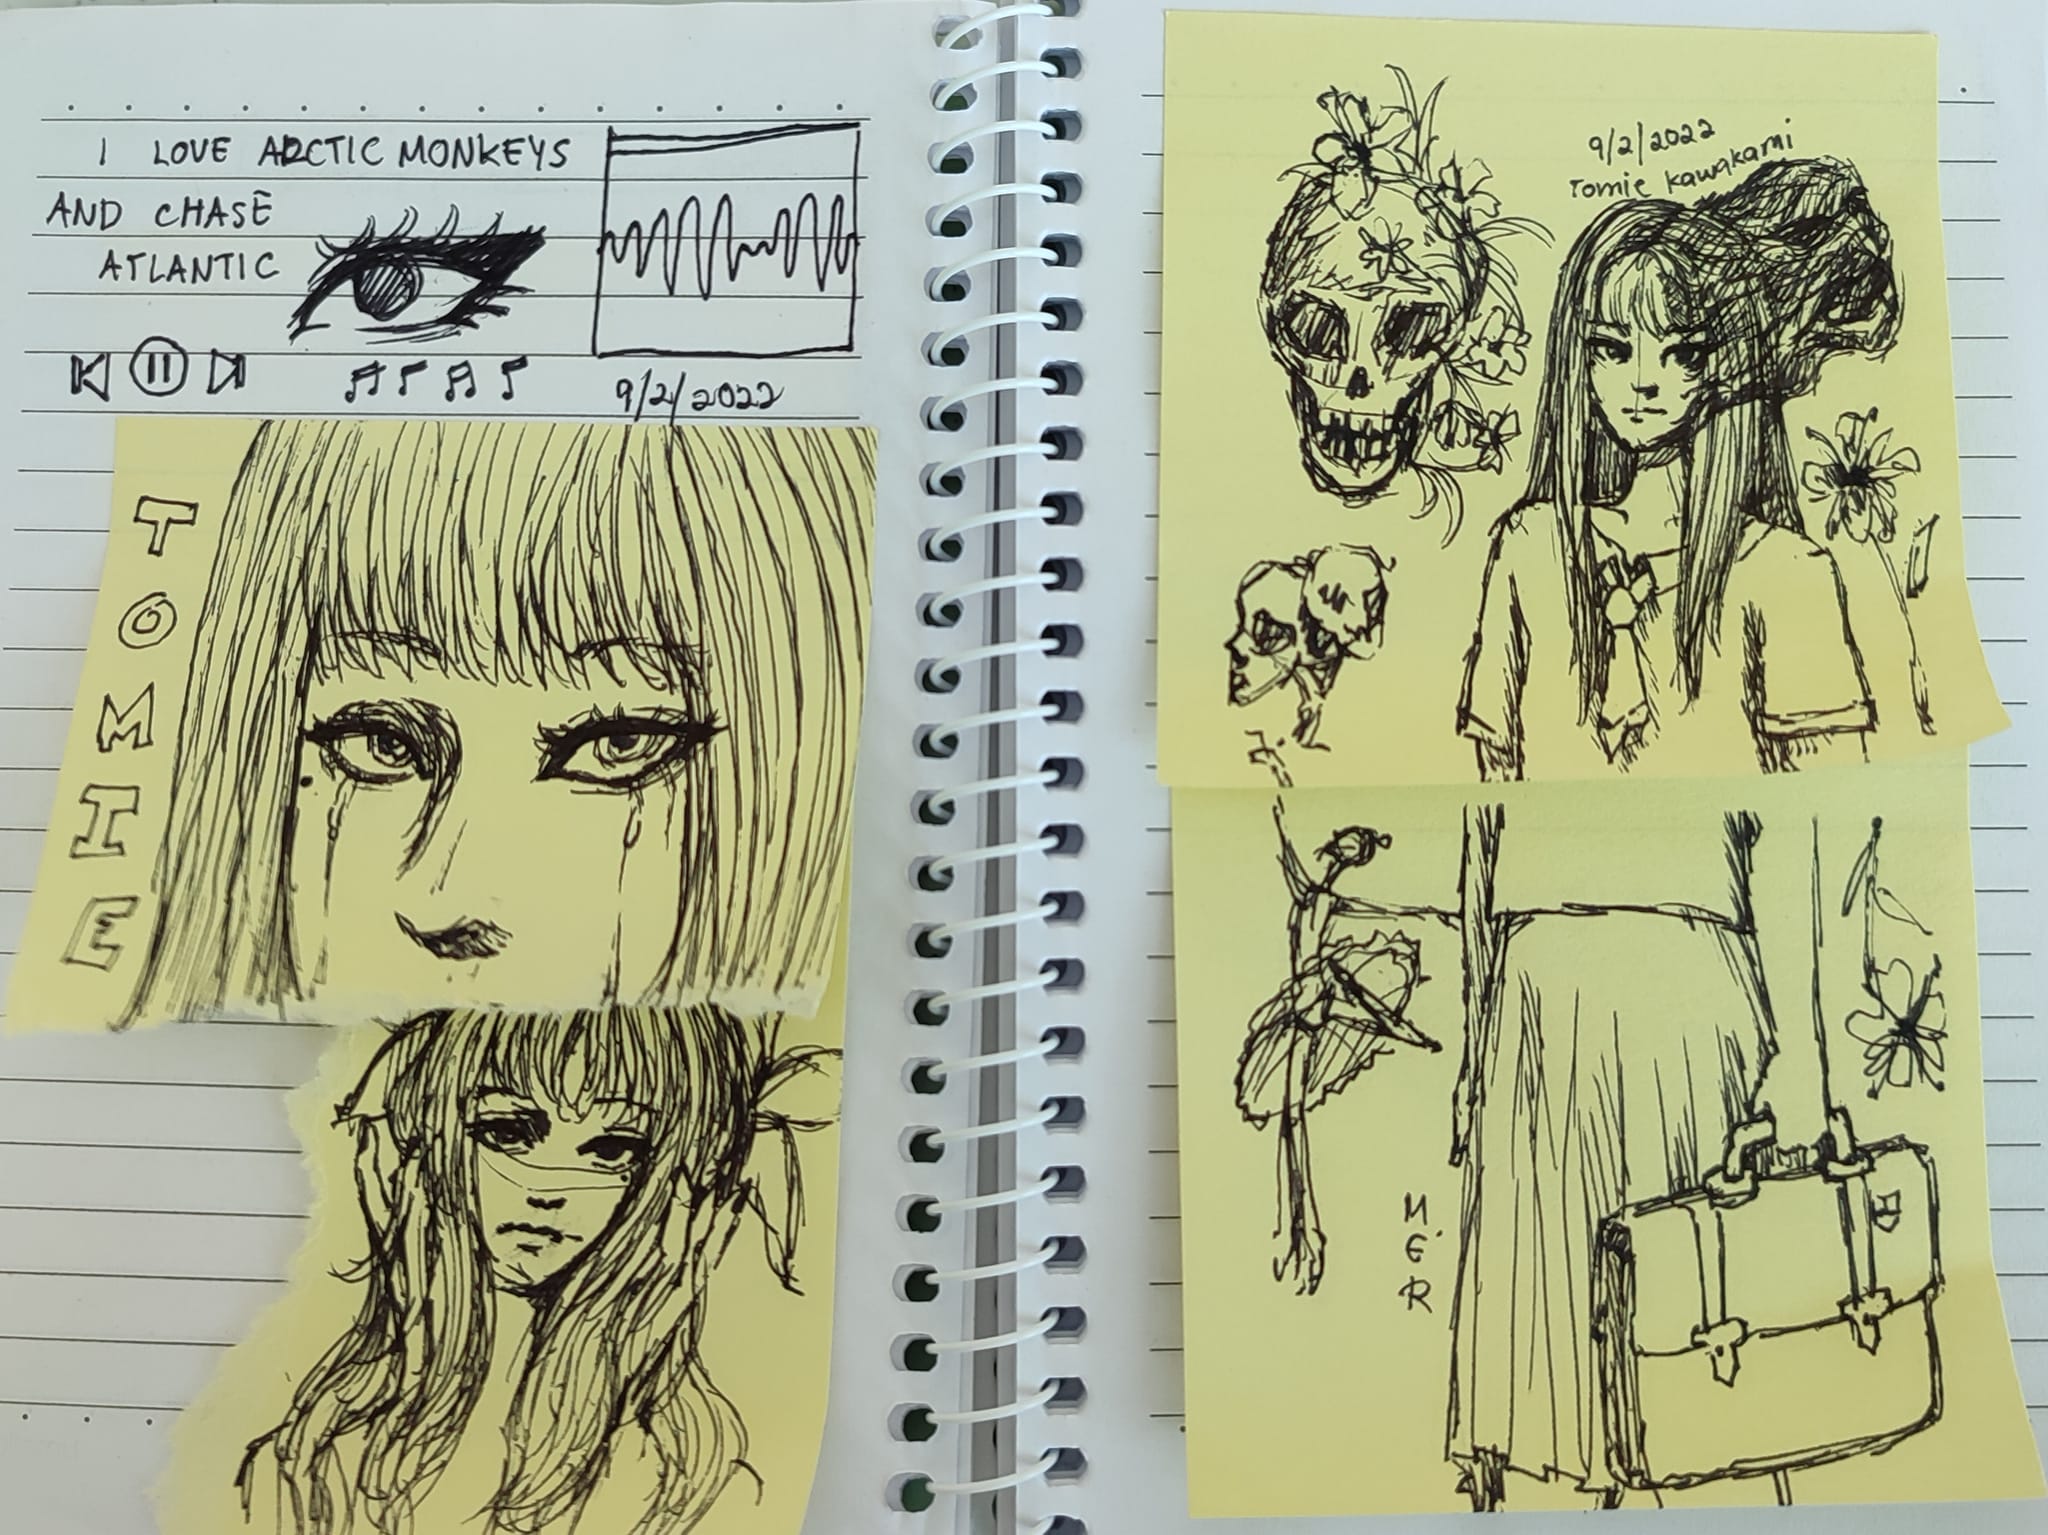 I LOVE ARCTIC MONKEYS
AND CHASE
ATLANTIC
9/2/2022
TOMIE
9/2/2022
Tomie Kawakami
M.E.R